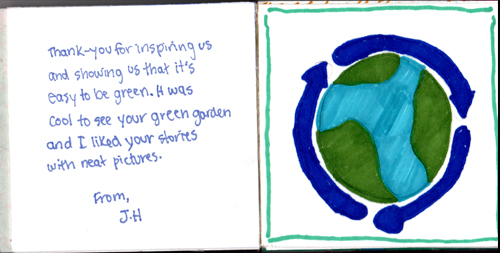 Thank-you for inspiring us
and showing us that it's
easy to be green. It was
cool to see your green garden
and I liked your stories
with neat pictures.
From,
J.H